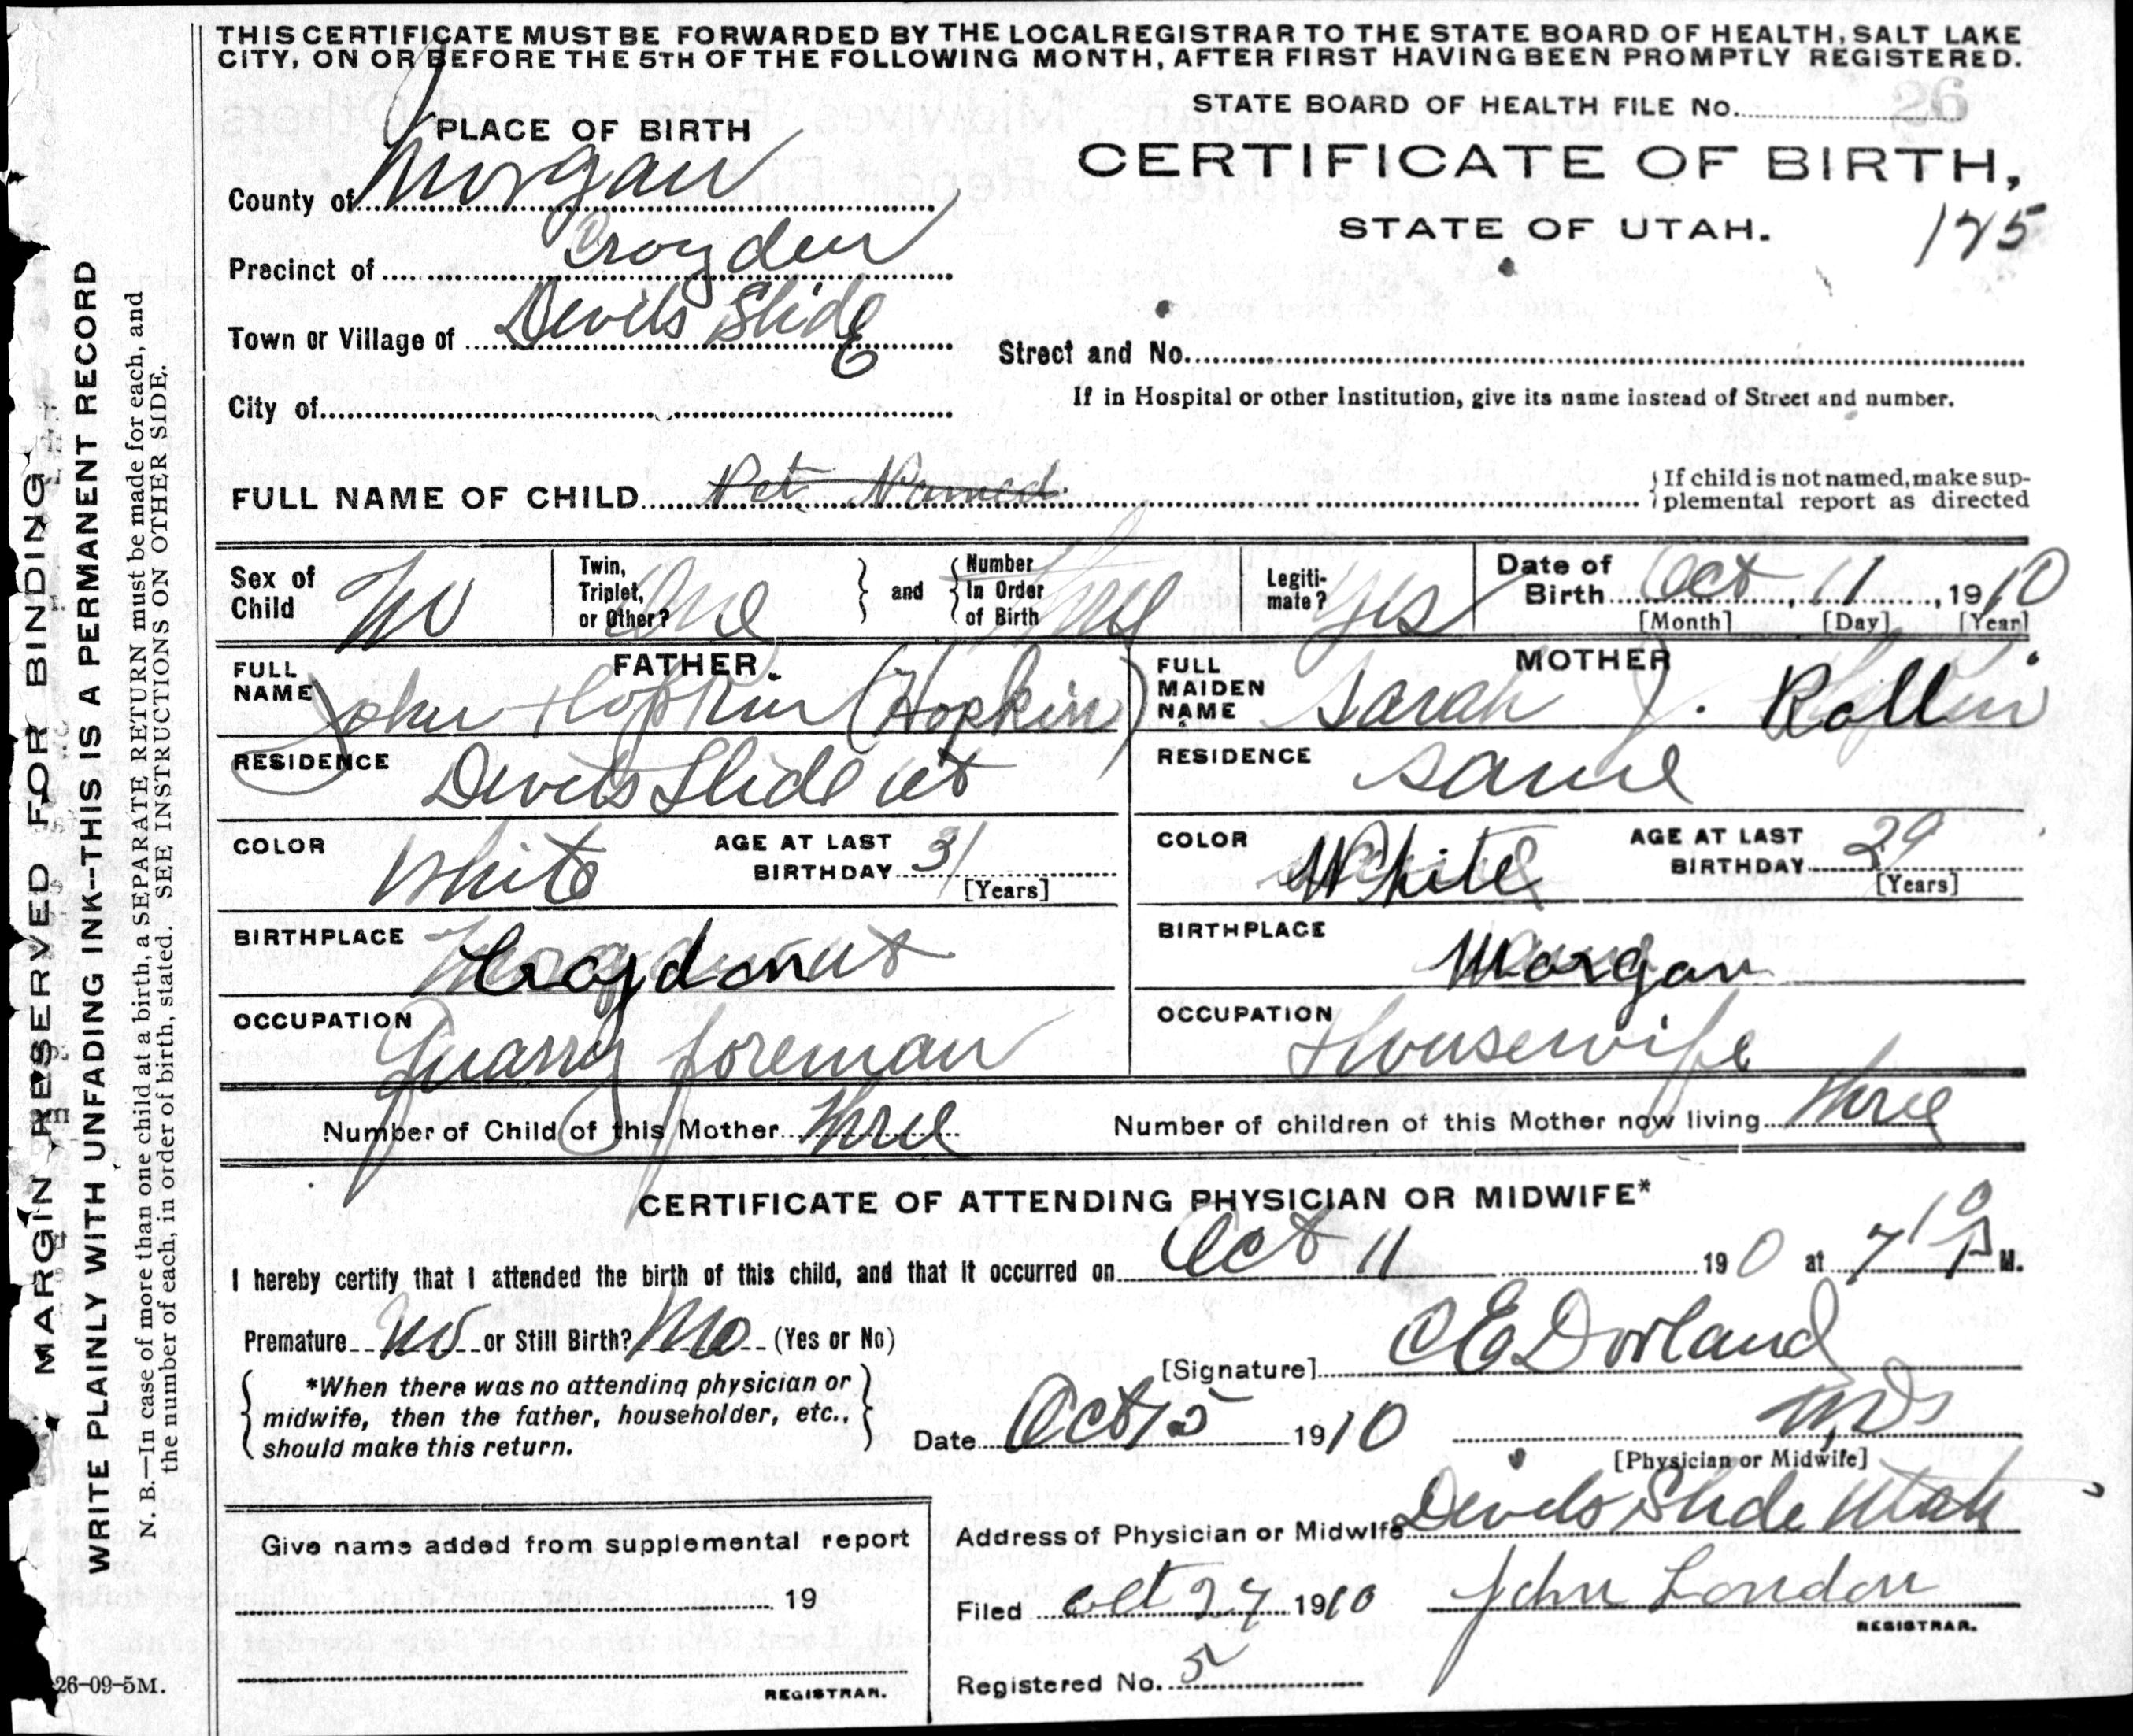 THIS CERTIFICATE MUST BE FORWARDED BY THE LOCAL REGISTRAR TO THE STATE BOARD OF HEALTH, SALT LAKE
CITY, ON OR BEFORE THE 5TH OF THE FOLLOWING MONTH, AFTER FIRST HAVING BEEN PROMPTLY REGISTERED.
STATE BOARD OF HEALTH FILE No.
PLACE OF BIRTH
CERTIFICATE OF BIRTH,
STATE OF UTAH.
County of Morgan
Precinct of Croyden
Town or Village of Devils Slide
Street and No.
City of
If in Hospital or other Institution, give its name instead of Street and number.
FULL NAME OF CHILD Not Named
If child is not named, make sup-
plemental report as directed
Sex of Child M
Twin, Triplet, or Other? One
and
Number In Order of Birth
Legiti-mate? Yes
Date of Birth Oct 11, 1910
[Month] [Day] [Year]
FATHER
FULL NAME John Hopkin (Hopkin)
MOTHER
FULL MAIDEN NAME Sarah J. Rollin
RESIDENCE Devils Slide Ut
RESIDENCE Same
COLOR White
AGE AT LAST BIRTHDAY 31 [Years]
COLOR White
AGE AT LAST BIRTHDAY 29 [Years]
BIRTHPLACE Croydon Ut
BIRTHPLACE Morgan
OCCUPATION Quarry foreman
OCCUPATION Housewife
Number of Child of this Mother Three
Number of children of this Mother now living Three
CERTIFICATE OF ATTENDING PHYSICIAN OR MIDWIFE*
I hereby certify that I attended the birth of this child, and that it occurred on Oct 11 190 at 7 10 P M.
Premature No or Still Birth? No (Yes or No)
[Signature] C E Dorland
*When there was no attending physician or
midwife, then the father, householder, etc.,
should make this return.
Date Oct 15 1910
MD
[Physician or Midwife]
Give name added from supplemental report
19
REGISTRAR.
Address of Physician or Midwife Devils Slide Utah
Filed Oct 27 1910 John London
REGISTRAR.
Registered No. 5
MARGIN RESERVED FOR BINDING
WRITE PLAINLY WITH UNFADING INK--THIS IS A PERMANENT RECORD
N. B.—In case of more than one child at a birth, a SEPARATE RETURN must be made for each, and
the number of each, in order of birth, stated. SEE INSTRUCTIONS ON OTHER SIDE.
26-09-5M.